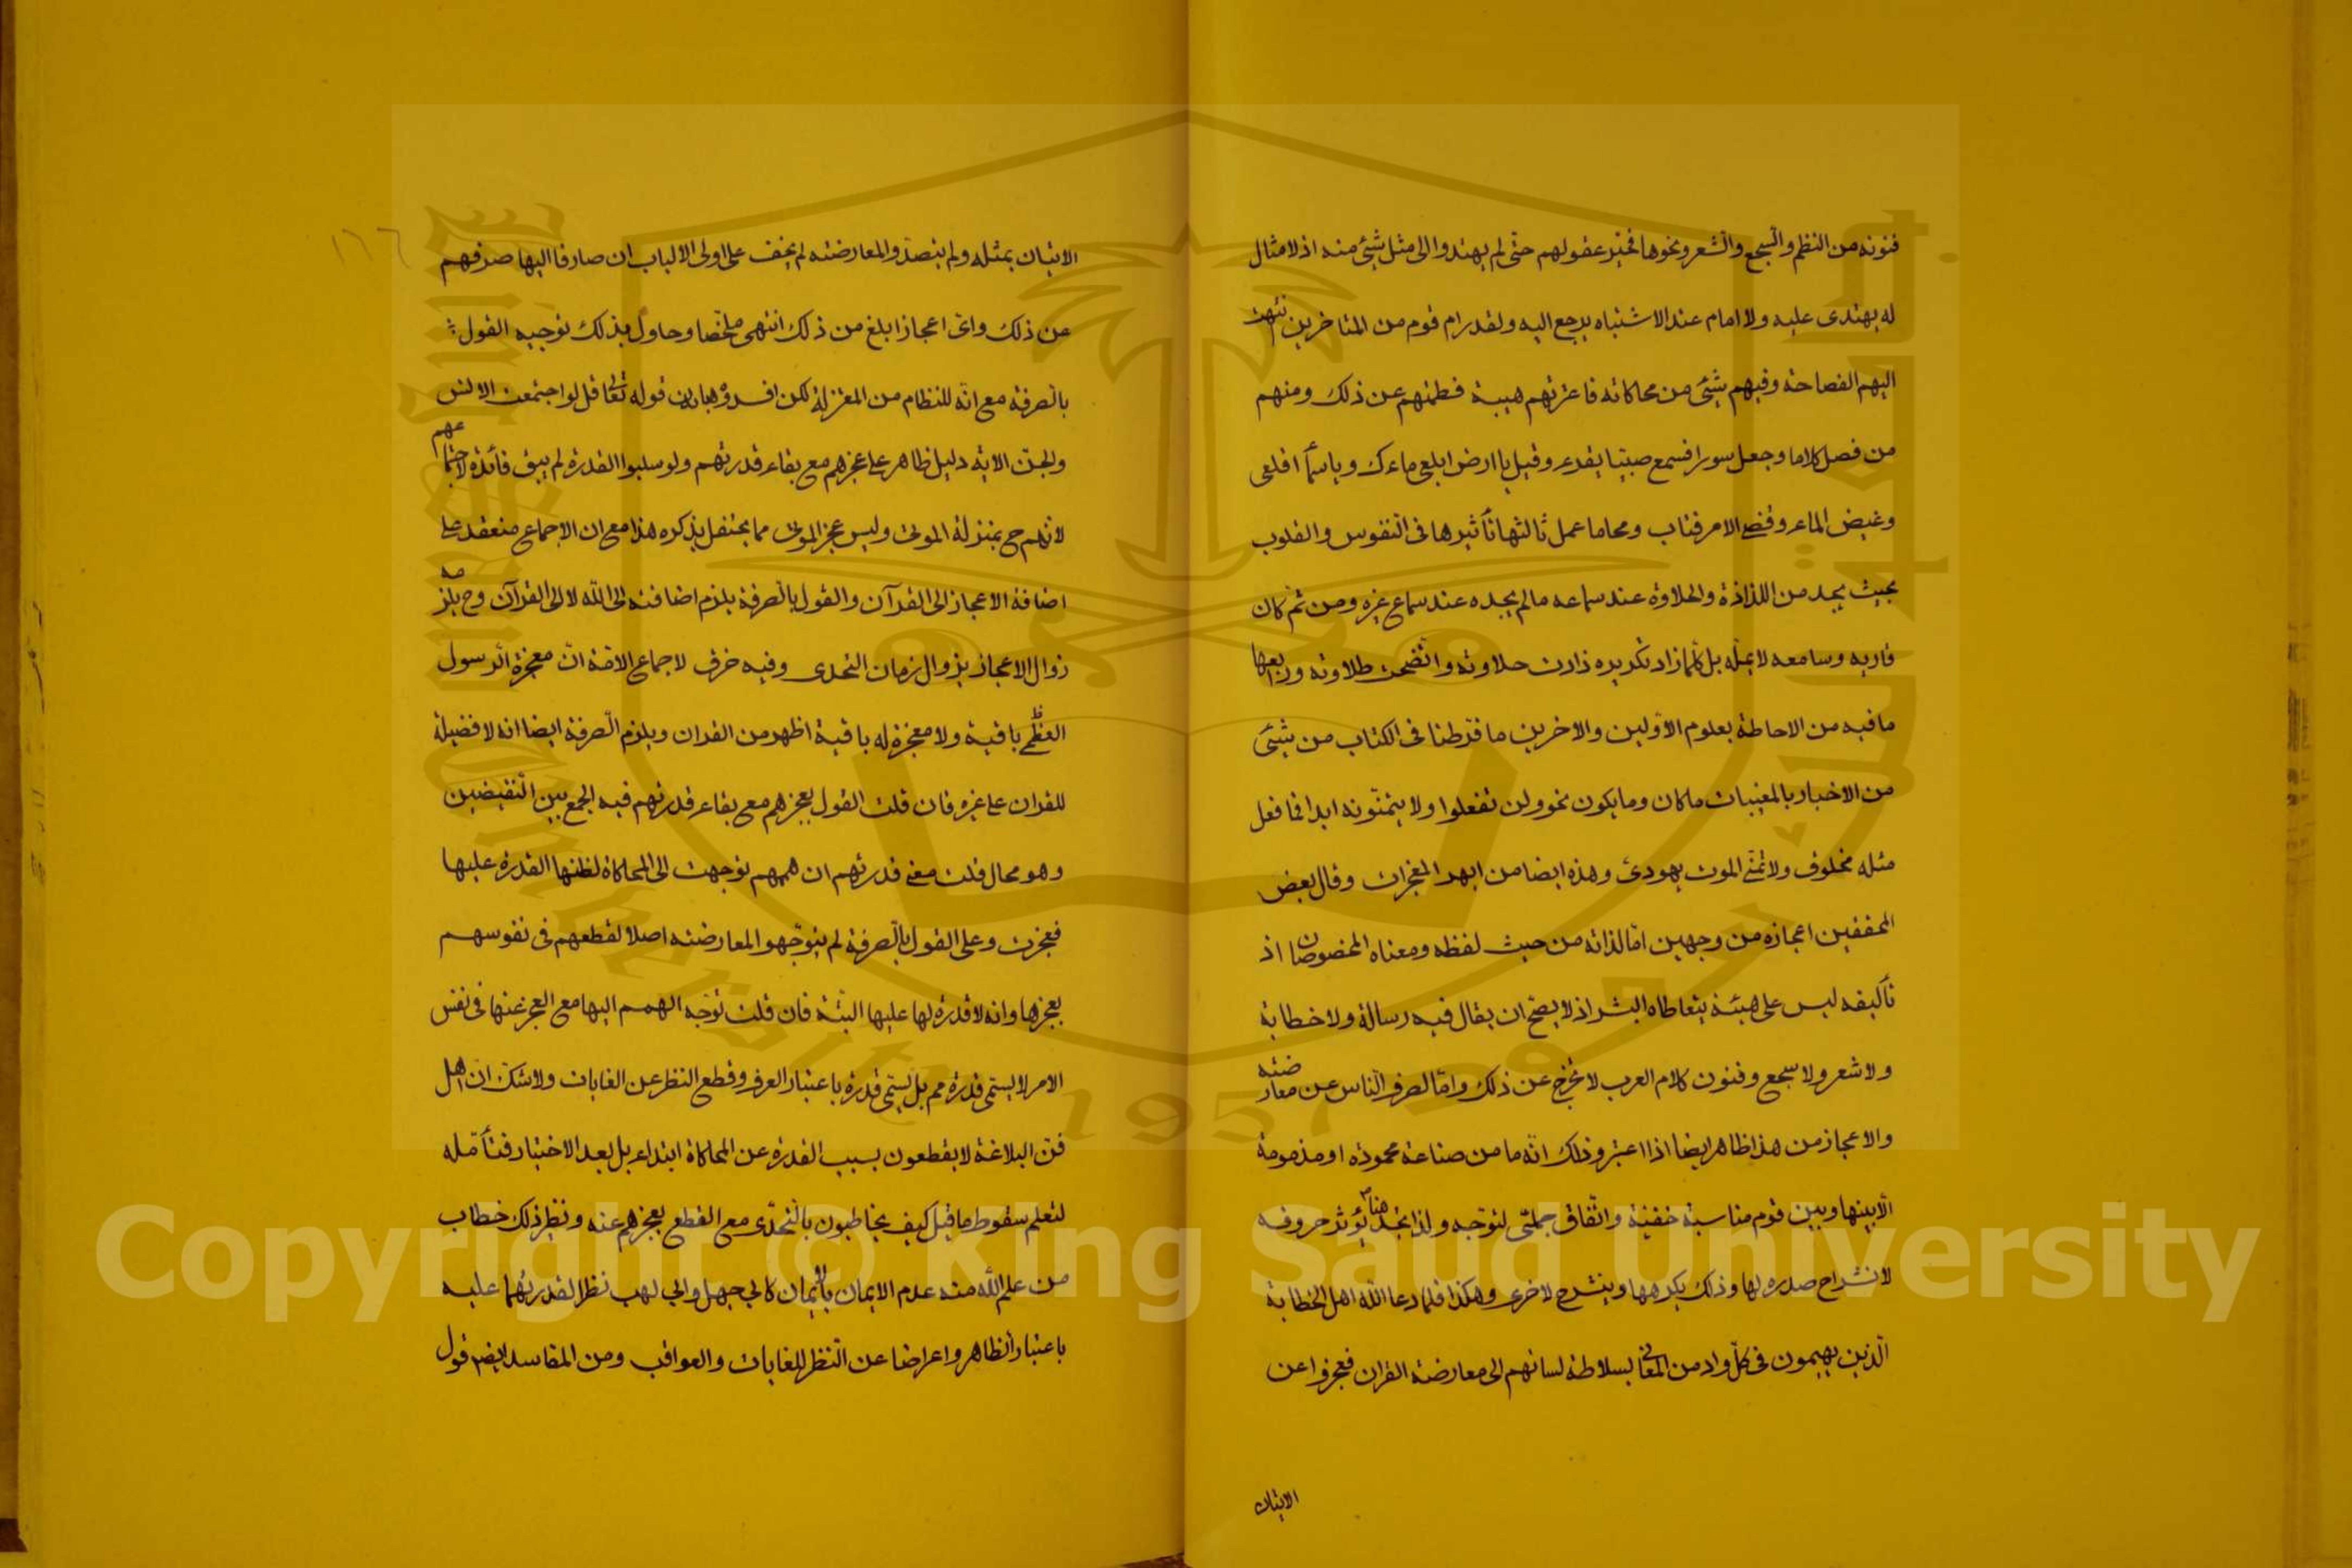 فنونه من النظم والسجع والشعر ونحوها فحير عقولهم حتى لم يهتدوا الى مثل شئ منه اذ لا مثال
له يهتدى عليه ولا امام عند الاشتباه يرجع اليه ولقد رام قوم من المتاخرين نتهت
اليهم الفصاحة وفيهم شئ من محاكاته فاعترتهم هيبة فطمتهم عن ذلك ومنهم
من فصل كلاما وجعل سورا فسمع صبيا يقرء وقيل يا ارض ابلعى ماءك وياسمآ اقلعى
وغيض الماء وقضى الامر فتاب ومحا ما عمل ثالثها تأثيرها فى النفوس والقلوب
بحيث يجد من اللذاذة والحلاوة عند سماعه ما لم يجده عند سماع غيره ومن ثم كان
قاريه وسامعه لا يمله بل كلما زاد تكريره زادت حلاوته واتضحت طلاوته ورابعها
ما فيه من الاحاطة بعلوم الاولين والاخرين ما فرطنا فى الكتاب من شئ
من الاخبار بالمغيبات ما كان وما يكون نحو ولن تفعلوا ولا يتمنونه ابدا فما فعل
مثله مخلوق ولا تمنى الموت يهودى وهذه ايضا من ابهر المعجزات وقال بعض
المحققين اعجازه من وجهين اما لذاته من حيث لفظه ومعناه المخصوصان اذ
تأليفه ليس على هيئة يتعاطاه البشر اذ لا يصح ان يقال فيه رسالة ولا خطابة
ولا شعر ولا سجع وفنون كلام العرب لا تخرج عن ذلك واما لصرف الناس عن معارضته
والاعجاز من هذا ظاهر ايضا اذا اعتبر وذلك انه ما من صناعة محمودة او مذمومة
الا بينها وبين قوم مناسبة خفية واتفاق جملى لتوجه ولذا تجد هنا يؤثر حروفه
لانشراح صدره لها وذلك يكرهها وينشرح لاخرى وهكذا فلما دعا الله اهل الخطابة
الذين يهيمون فى كل واد من المعانى بسلاطة لسانهم الى معارضة القران فعجزوا عن
الاتيان
١٦٦
الاتيان بمثله ولم يتصدوا لمعارضته لم يخف على اولى الالباب ان صارفا اليها صرفهم
عن ذلك واى اعجاز ابلغ من ذلك انتهى ملخصا وحاول بذلك توجيه القول
بالصرفة مع انه للنظام من المعتزلة لكن افسدوها بان قوله تعالى قل لو اجتمعت الانس
والجن الاية دليل ظاهر على عجزهم مع بقاء قدرتهم ولو سلبوا القدرة لم يبق فائدة لاجتماعهم
لانهم ح بمنزلة الموتى وليس عجز الموتى مما يحتفل بذكره هذا مع ان الاجماع منعقد على
اضافة الاعجاز الى القرآن والقول بالصرفة يلزم اضافته الى الله لا الى القرآن وح يلزمه
زوال الاعجاز بزوال زمان التحدى وفيه خرق لاجماع الامة ان معجزة الرسول
العظمى باقية ولا معجزة له باقية اظهر من القران ويلزم الصرفة ايضا انه لا فضيلة
للقران على غيره فان قلت القول بعجزهم مع بقاء قدرتهم فيه الجمع بين النقيضين
وهو محال قلت معنى قدرتهم ان هممهم توجهت الى المحاكاة لظنها القدرة عليها
فعجزت وعلى القول بالصرفة لم يتوجهوا لمعارضته اصلا لقطعهم فى نفوسهم
بعجزها وانه لا قدرة لها عليها البتة فان قلت توجه الهمم اليها مع العجز عنها فى نفس
الامر لا يسمى قدرة مم بل يسمى قدرة باعتبار العرف وقطع النظر عن الغايات ولا شك ان اهل
فن البلاغة لا يقطعون بسبب القدرة عن المحاكاة ابتداء بل بعد الاختبار فتأمله
لتعلم سقوط ما قيل كيف يخاطبون بالتحدى مع القطع بعجزهم عنه ونظير ذلك خطاب
من علم الله منه عدم الايمان بالايمان كابي جهل وابي لهب نظرا لقدرتهما عليه
باعتبار الظاهر واعراضا عن النظر للغايات والعواقب ومن المقاسد ايضم قول
Copyright © King Saud University
1957